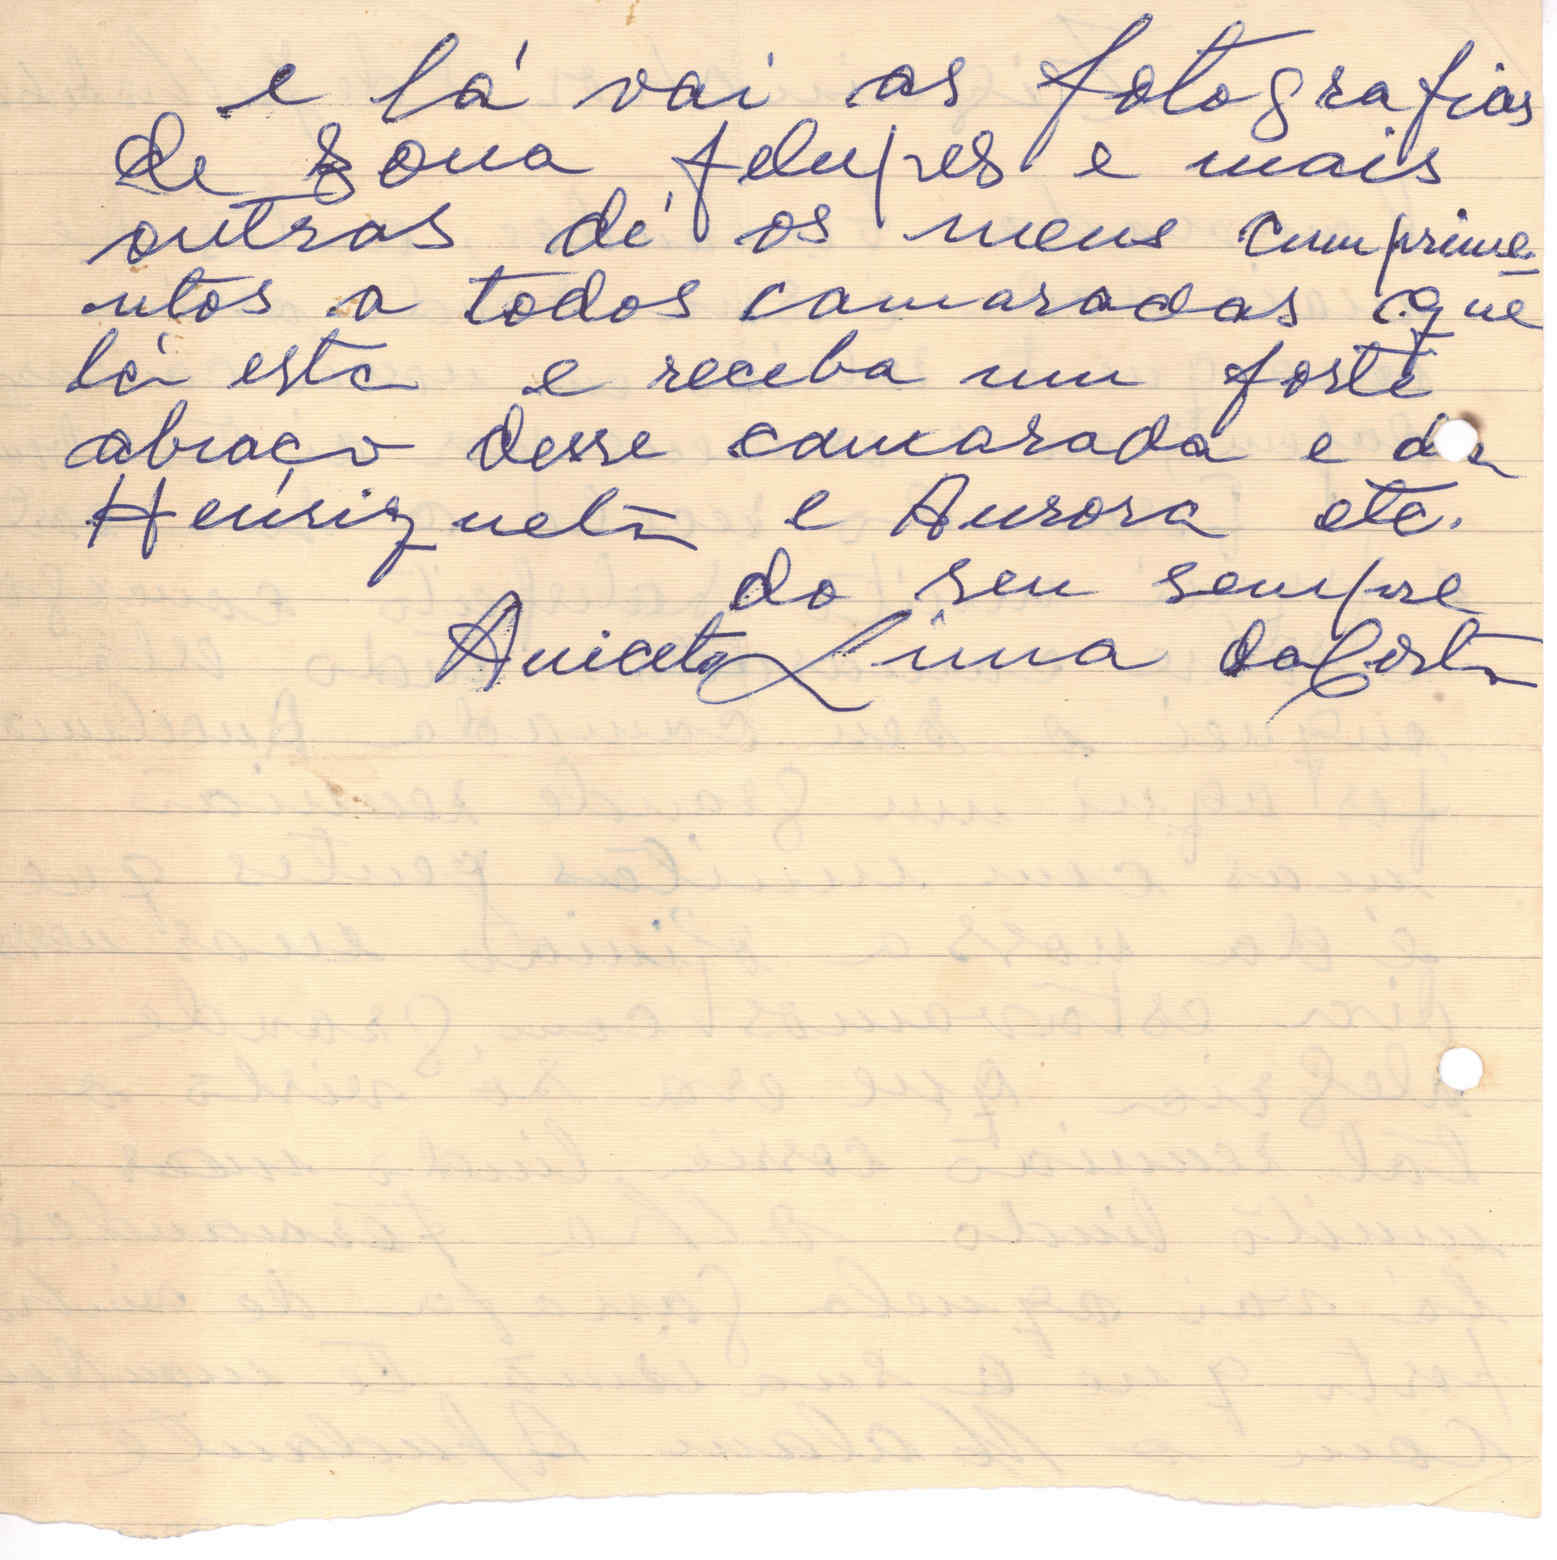 e lá vai as fotografias
de zona felupes e mais
outras dé os meus cumprime-
ntos a todos camaradas que
lá esta e receba um forte
abraço desse camarada e da
Henriqueta e Aurora etc.
do seu sempre
Aniceto Lima da Costa